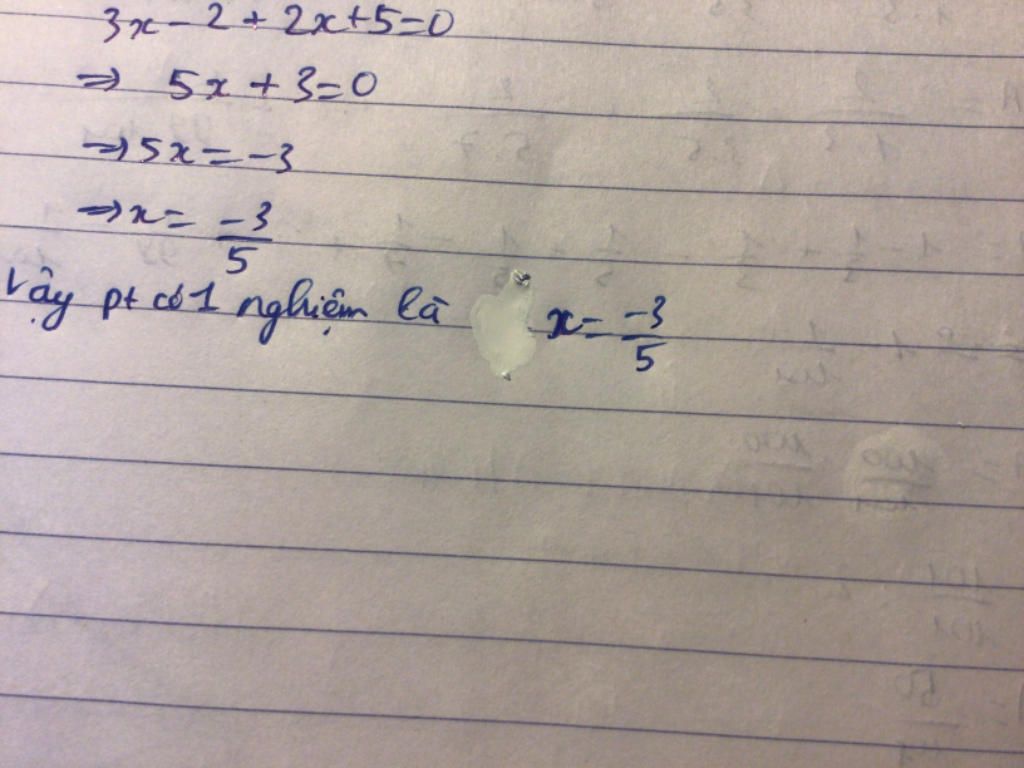 3x - 2 + 2x + 5 = 0
⇒ 5x + 3 = 0
⇒ 5x = -3
⇒ x = -3/5
Vậy pt có 1 nghiệm là x = -3/5